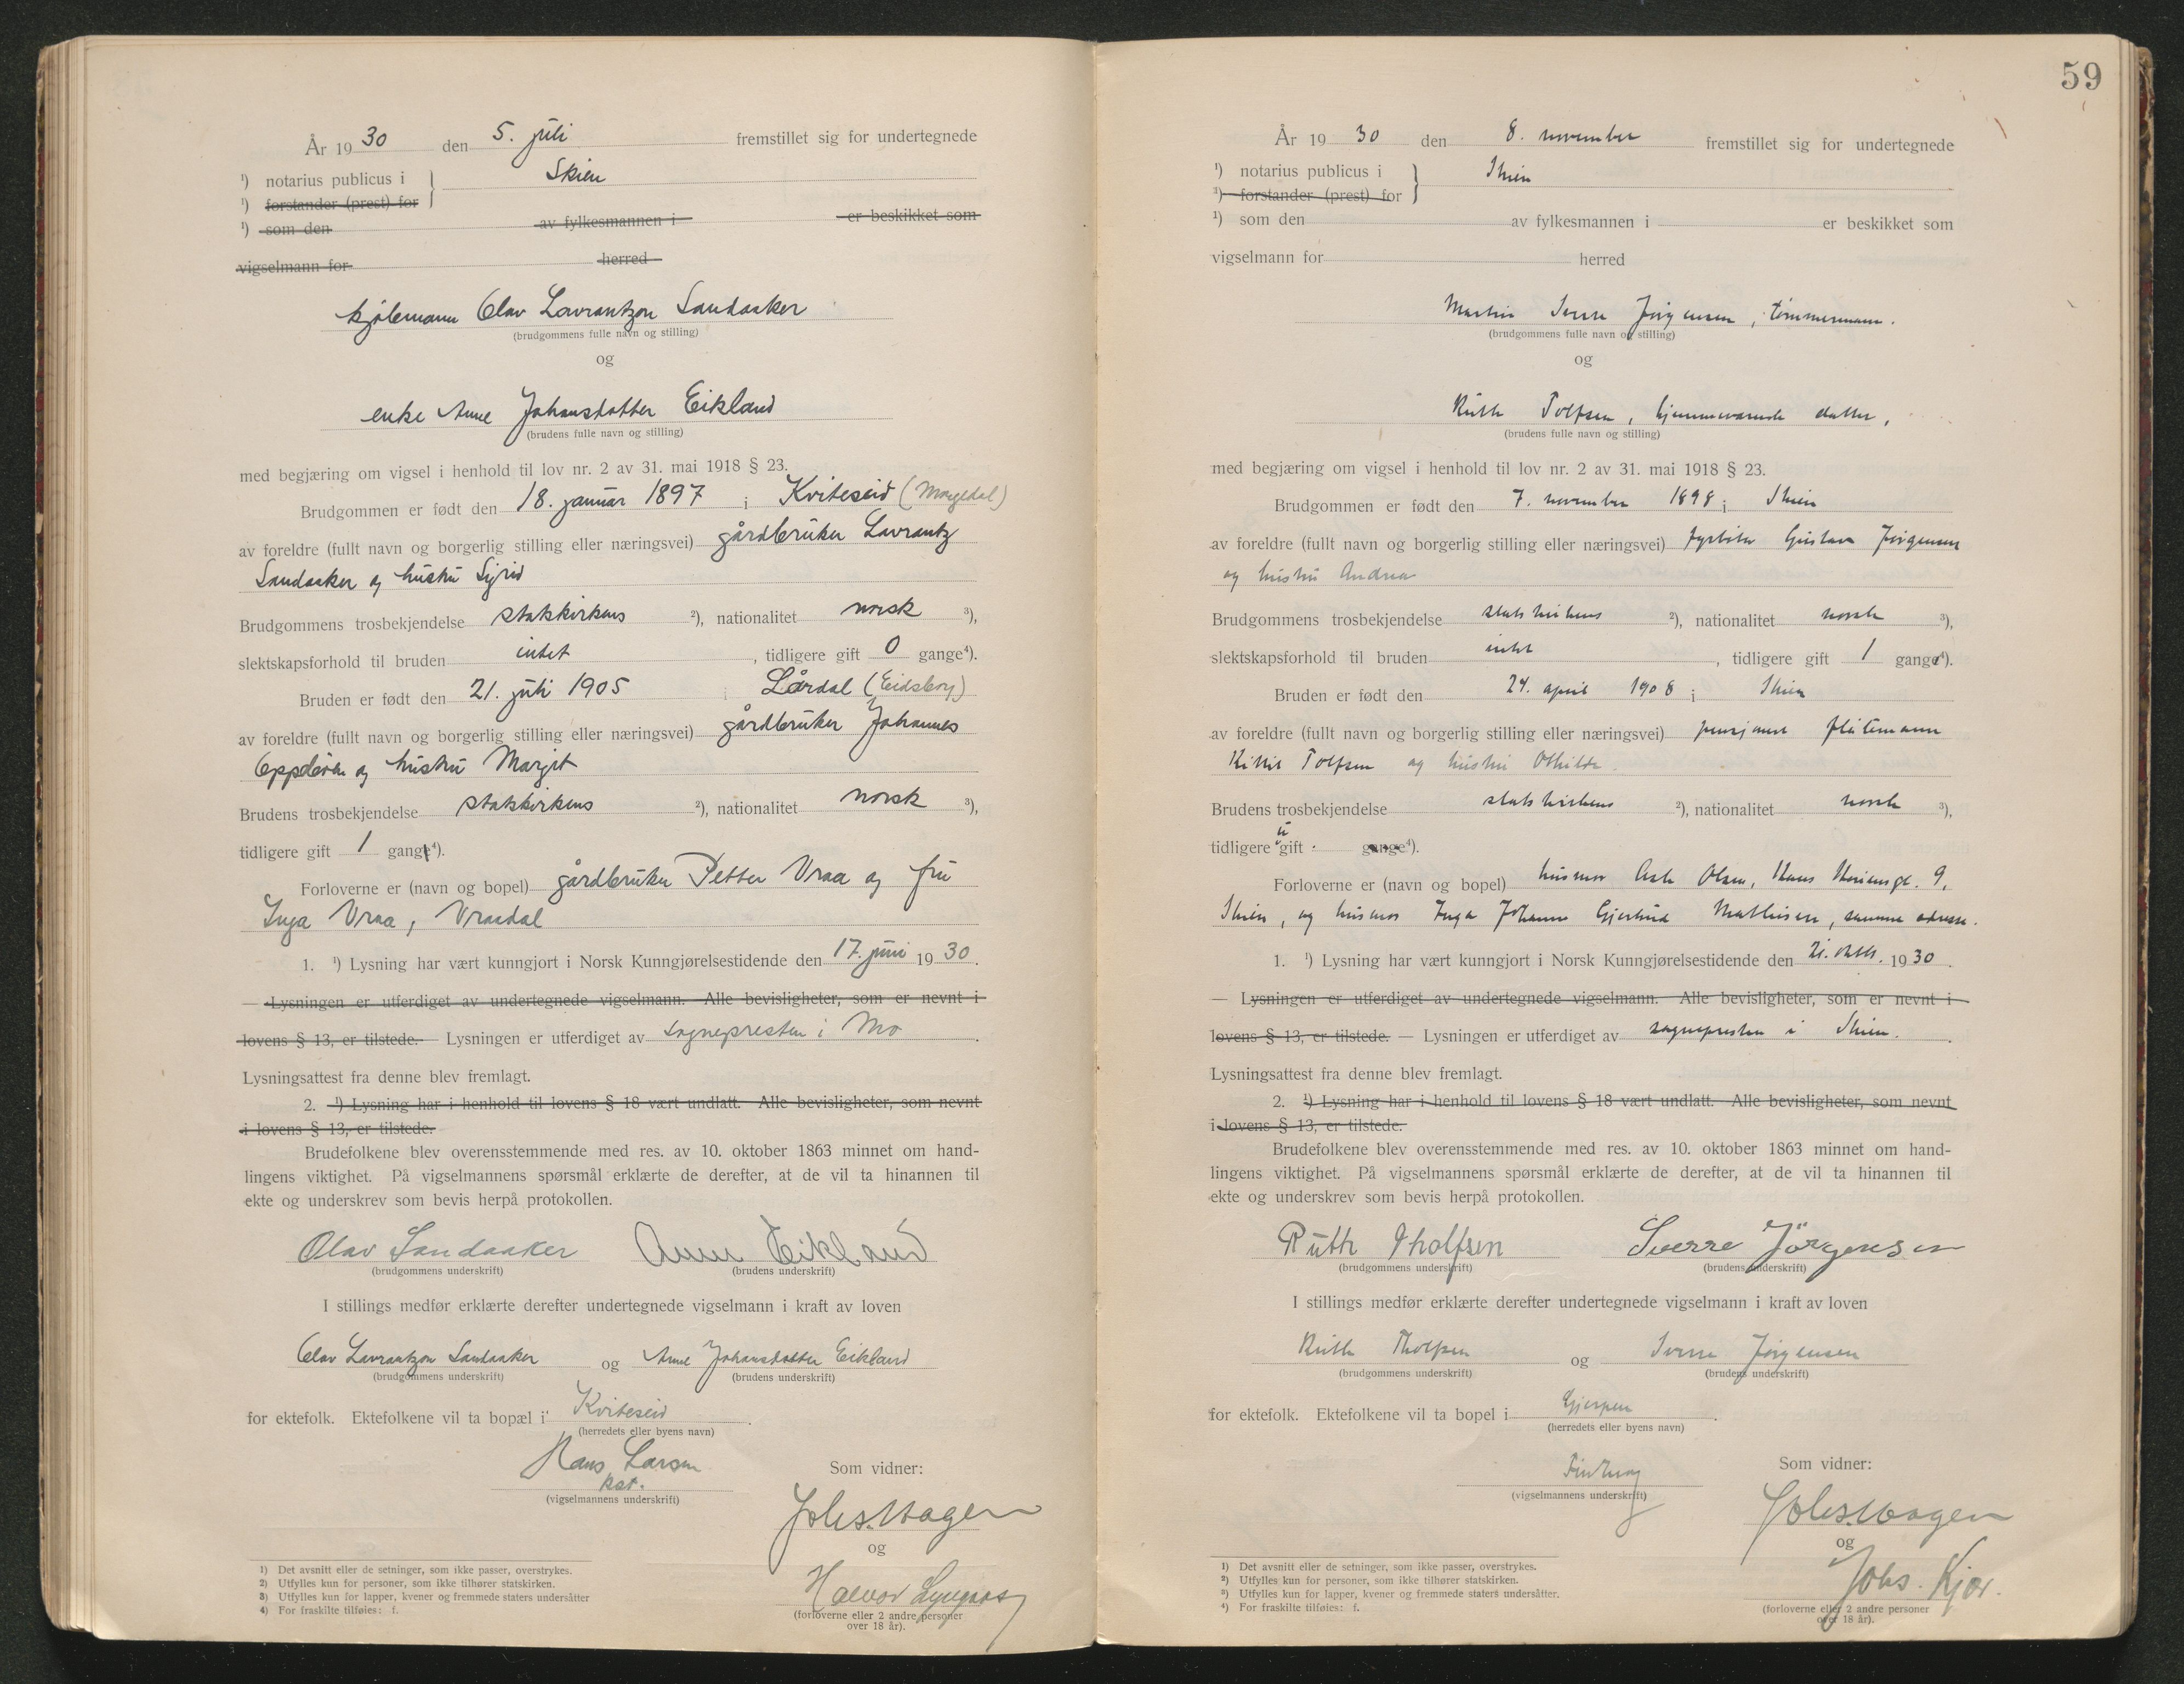 År 1930 den 5. juli fremstillet sig for undertegnede
¹) notarius publicus i } Skien
¹) forstander (prest) for
¹) som den av fylkesmannen i er beskikket som
vigselmann for herred
kjølemann Olav Lavrantzon Sandaaker
(brudgommens fulle navn og stilling)
og
enke Anne Johansdatter Eikland
(brudens fulle navn og stilling)
med begjæring om vigsel i henhold til lov nr. 2 av 31. mai 1918 § 23.
Brudgommen er født den 18. januar 1897 i Kviteseid (Morgedal)
av foreldre (fullt navn og borgerlig stilling eller næringsvei) gårdbruker Lavrantz
Sandaaker og hustru Sigrid
Brudgommens trosbekjendelse statskirkens ²), nationalitet norsk ³),
slektskapsforhold til bruden intet, tidligere gift 0 gange⁴).
Bruden er født den 21. juli 1905 i Lårdal (Eidsborg)
av foreldre (fullt navn og borgerlig stilling eller næringsvei) gårdbruker Johannes
og hustru Margit
Brudens trosbekjendelse statskirkens ²), nationalitet norsk ³),
tidligere gift 1 gange⁴).
Forloverne er (navn og bopel) gårdbruker Petter Vraa og fru
Inga Vraa, Vraadal
1. ¹) Lysning har vært kunngjort i Norsk Kunngjørelsestidende den 17. juni 1930.
— Lysningen er utferdiget av undertegnede vigselmann. Alle bevisligheter, som er nevnt i
lovens § 13, er tilstede. — Lysningen er utferdiget av sognepresten i Mo.
Lysningsattest fra denne blev fremlagt.
2. ¹) Lysning har i henhold til lovens § 18 vært undlatt. Alle bevisligheter, som nevnt
i lovens § 13, er tilstede.
Brudefolkene blev overensstemmende med res. av 10. oktober 1863 minnet om hand-
lingens viktighet. På vigselmannens spørsmål erklærte de derefter, at de vil ta hinannen til
ekte og underskrev som bevis herpå protokollen.
Olav Sandaaker Anne Eikland
(brudgommens underskrift) (brudens underskrift)
I stillings medfør erklærte derefter undertegnede vigselmann i kraft av loven
Olav Lavrantzon Sandaaker og Anne Johansdatter Eikland
(brudgommens underskrift) (brudens underskrift)
for ektefolk. Ektefolkene vil ta bopæl i Kviteseid.
(herredets eller byens navn)
Hans Larsen
kst.
(vigselmannens underskrift)
Som vidner:
Johs. Hagen
og
Halvor
(forloverne eller 2 andre personer
over 18 år).
1) Det avsnitt eller de setninger, som ikke passer, overstrykes.
2) Utfylles kun for personer, som ikke tilhører statskirken.
3) Utfylles kun for lapper, kvener og fremmede staters undersåtter
4) For fraskilte tilføies: f.
59
År 1930 den 8. november fremstillet sig for undertegnede
¹) notarius publicus i } Skien
¹) forstander (prest) for
¹) som den av fylkesmannen i er beskikket som
vigselmann for herred
Martin Sverre Jørgensen, tømmermann.
(brudgommens fulle navn og stilling)
og
Ruth Tolfsen, hjemmeværende datter,
(brudens fulle navn og stilling)
med begjæring om vigsel i henhold til lov nr. 2 av 31. mai 1918 § 23.
Brudgommen er født den 7. november 1898 i Skien
av foreldre (fullt navn og borgerlig stilling eller næringsvei) fyrbøter Gustav Jørgensen
og hustru Andrea
Brudgommens trosbekjendelse statskirkens ²), nationalitet norsk ³),
slektskapsforhold til bruden intet, tidligere gift 1 gange⁴).
Bruden er født den 24. april 1908 i Skien
av foreldre (fullt navn og borgerlig stilling eller næringsvei) pensjonert fløtemann
Kittil Tolfsen og hustru Othilde.
Brudens trosbekjendelse statskirkens ²), nationalitet norsk ³),
tidligere ugift gange⁴).
Forloverne er (navn og bopel) husmor Olsen, 9,
Skien, og husmor Inga Johanne Gjertrud Mathisen, samme adresse.
1. ¹) Lysning har vært kunngjort i Norsk Kunngjørelsestidende den 21. oktbr. 1930.
— Lysningen er utferdiget av undertegnede vigselmann. Alle bevisligheter, som er nevnt i
lovens § 13, er tilstede. — Lysningen er utferdiget av sognepresten i Skien.
Lysningsattest fra denne blev fremlagt.
2. ¹) Lysning har i henhold til lovens § 18 vært undlatt. Alle bevisligheter, som nevnt
i lovens § 13, er tilstede.
Brudefolkene blev overensstemmende med res. av 10. oktober 1863 minnet om hand-
lingens viktighet. På vigselmannens spørsmål erklærte de derefter, at de vil ta hinannen til
ekte og underskrev som bevis herpå protokollen.
Ruth Tholfsen Sverre Jörgensen
(brudgommens underskrift) (brudens underskrift)
I stillings medfør erklærte derefter undertegnede vigselmann i kraft av loven
Ruth Tholfsen og Sverre Jørgensen
(brudgommens underskrift) (brudens underskrift)
for ektefolk. Ektefolkene vil ta bopel i Gjerpen.
(herredets eller byens navn)
(vigselmannens underskrift)
Som vidner:
Johs. Hagen
og
Johs. Kjær.
(forloverne eller 2 andre personer
over 18 år).
1) Det avsnitt eller de setninger, som ikke passer, overstrykes.
2) Utfylles kun for personer, som ikke tilhører statskirken.
3) Utfylles kun for lapper, kvener og fremmede staters undersåtter.
4) For fraskilte tilføies: f.